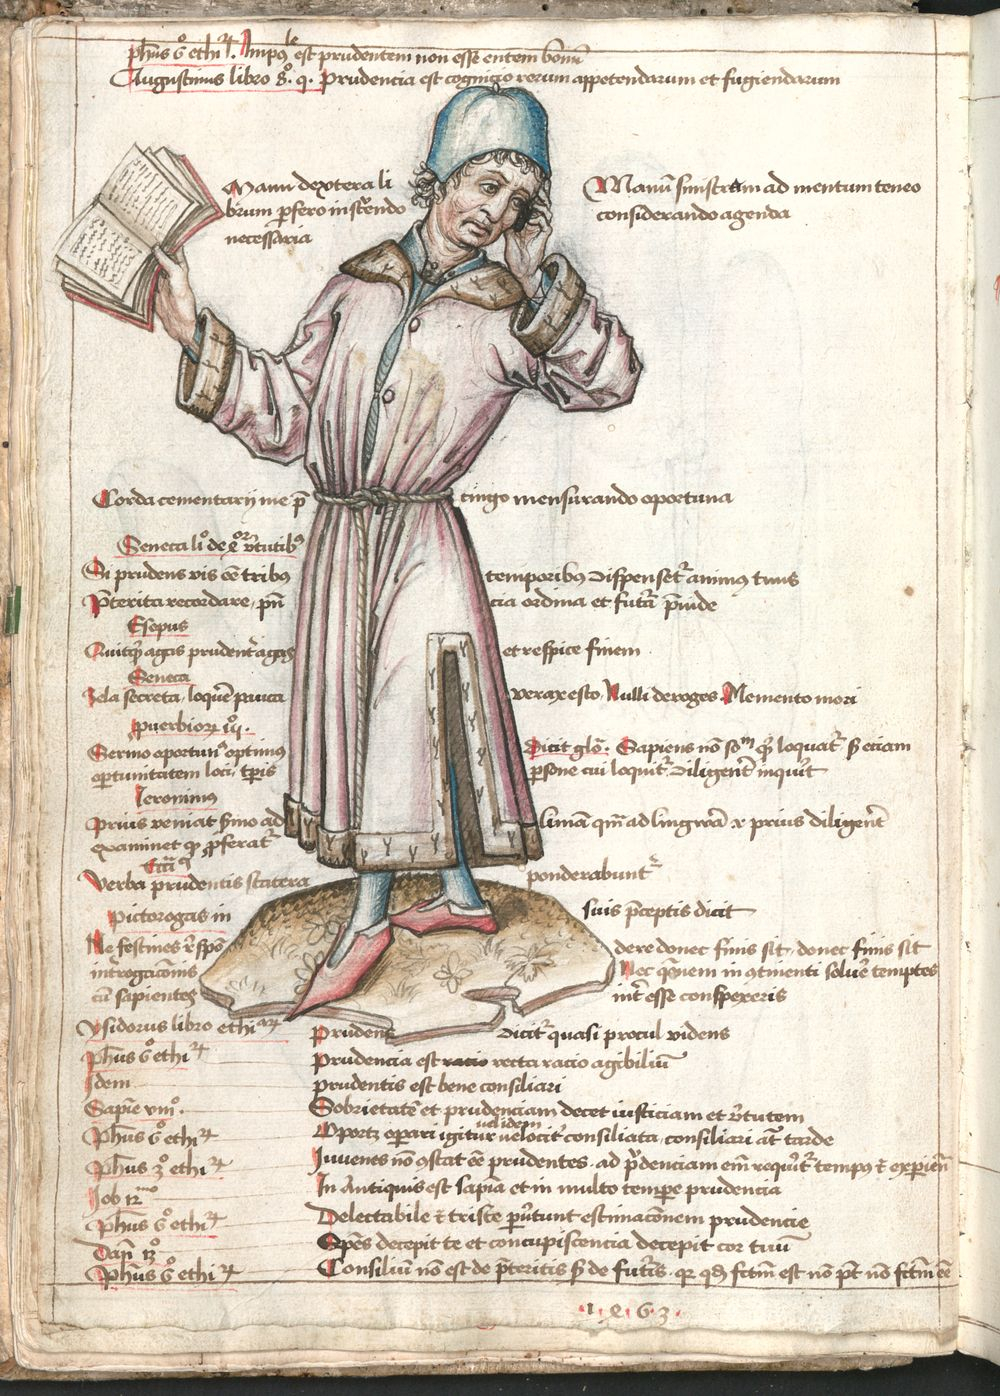 phus 6º ethicor. Impole est prudentem non esse entem bonum
Augustinus libro 8º. q. Prudencia est cognicio rerum appetendarum et fugiendarum
Manu dextera li
brum p̱fero inscendo
necessaria
Manū sinistram ad mentum teneo
considerando agenda
Corda cementarij me p̄cingo mensurando oportuna
Seneca liº de virtutibꝰ
Si prudens vis eē tribꝰ temporibꝰ dispenset᷑ animus tuus
P̄terita recordare, pn̄cia ordina et futᷓa p̄uide
Esopus
Quitq̇d agas prudent᷑ agas et respice finem
Seneca
Zela secreta, loque᷑ pauca verax esto, Nulli deroges, Memento mori
puerbioꝝ
Sermo oportunꝰ optimus
oportunitatem loci, tp̱is
Dicit glo. Sapiens nō som̄ qᷓ loquat᷑ ẜ eciam
p̱sone cui loquit᷑ diligent᷑ inquirit
Ieronimus
Prius veniat ẜmo ad limam qm̄ ad lingwā ⁊ prius diligent᷑
examinet᷑ qᷓ p̱ferat᷑
Verba prudentis statera ponderabunt᷑
pictorogas in suis p̄ceptis dicit
Ne festines r̄spōdere donec finis sit, donec finis sit
int᷑rogacōnis Nec q̄nem in ꝯtinenti solue᷑ temptes
cū sapientes int᷑ esse conspexeris
Ysidorus libro ethicoꝝ Prudens dicit᷑ quasi procul videns
Phus 6º ethiꝝ Prudencia est racio recta racio agibiliū
Idem Prudentis est bene consiliari
Sapie viiiº. Sobrietatē et prudenciam docet iusticiam et v᷑tutem
vel idem
Phus 6º ethiꝝ Oportꝫ operari igitur velocit᷑ consiliata, consiliari aūt tarde
Phus 3º ethiꝝ Iuuenes nō ꝯstat eē prudentes, ad p᷑denciam em̄ requi᷑t᷑ tempꝰ ⁊ experien̄
Job 12º In Antiquis est sapīa et in multo tempore prudencia
Phus 6º ethiꝝ Delectabile ⁊ triste p̱u᷑tunt estimacōnem prudencie
Dan̄ 13º Spēs decepit te et concupiscencia decepit cor tuū
Phus 6º ethiꝝ Consiliū nō est de p̄teritis ẜ de futᷓis, qꝛ qd̄ fc̄m est nō pt̄ nō fc̄m eē
.1.4.6.3.